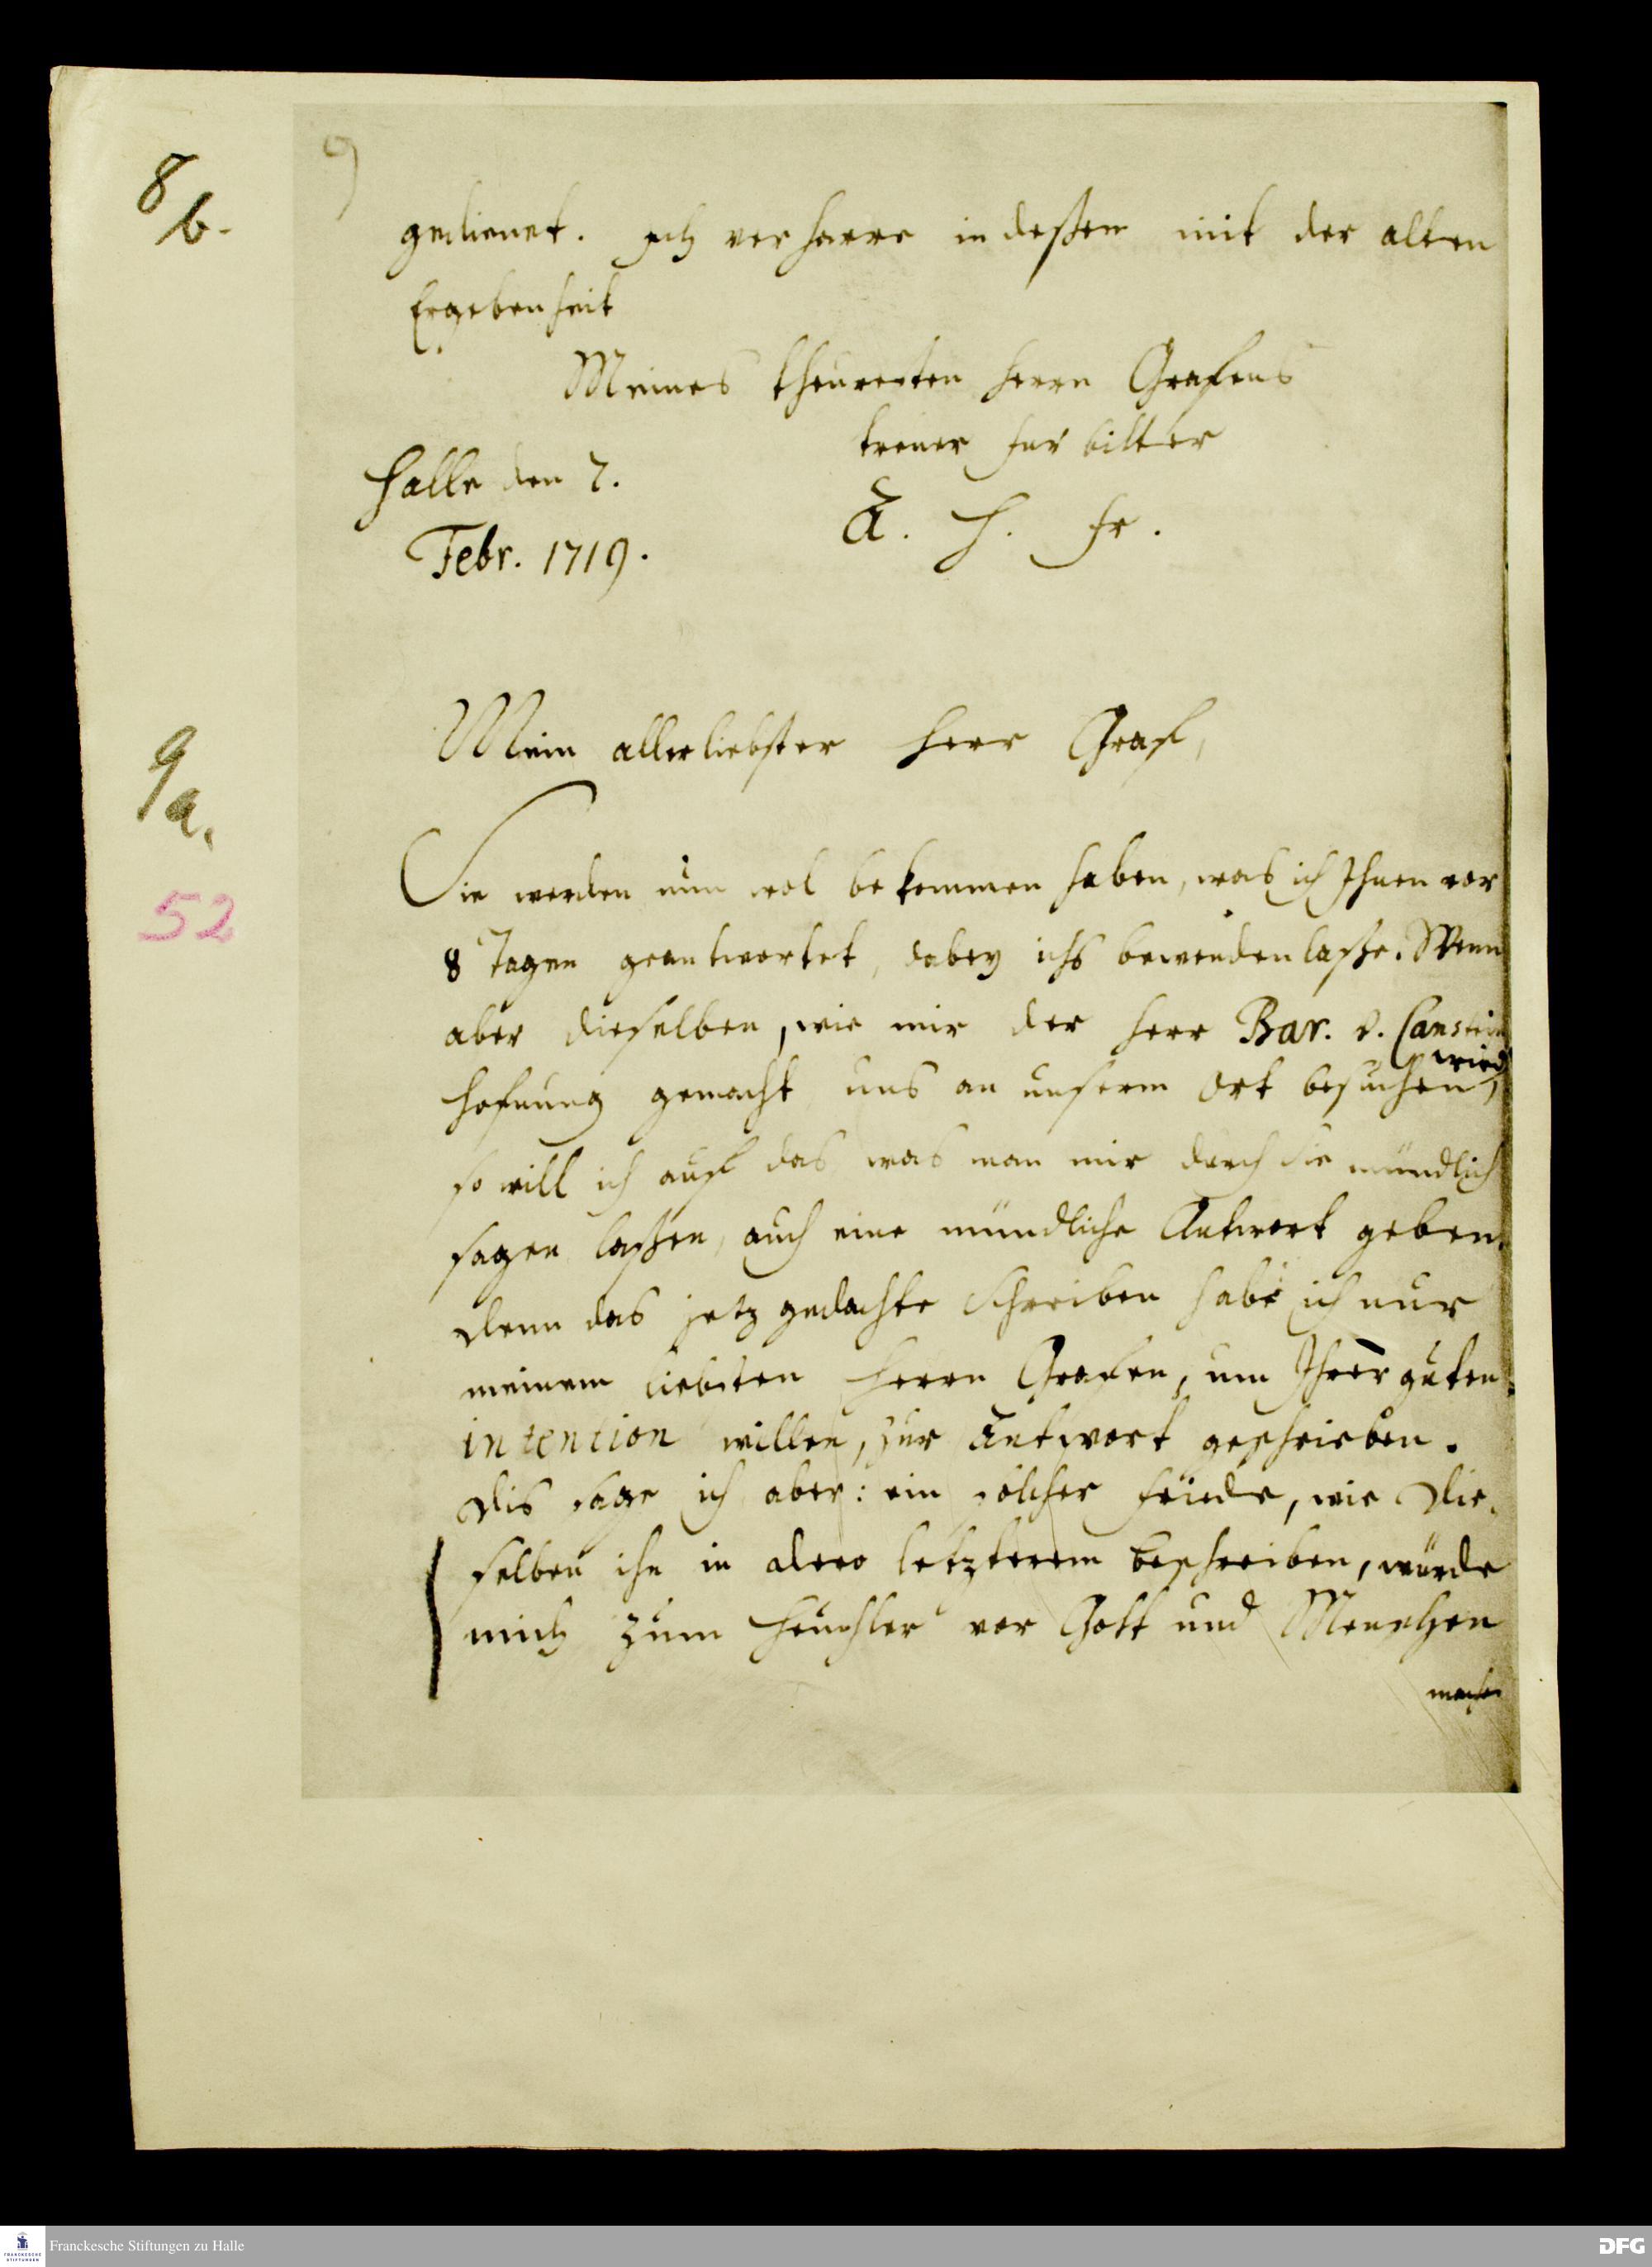 8/b.
9
gedienet. Ich verharre indeßen mit der alten
Ergebenheit
Meines theuresten Herrn Grafens
treuer fürbitter
Halle den 7.
A. H. Fr.
Febr. 1719.
Mein allerliebster Herr Graf,
9/a.
Sie werden nun wol bekommen haben, was ich Ihnen vor
52
8 Tagen geantwortet, dabey ichs bewenden laße. Wenn
aber dieselben, wie mir der Herr Bar. v. Canstein
wird
Hofnung gemacht uns an unserm Ort besuchen,
so will ich auf das was man mir durch Sie mündlich
sagen laßen, auch eine mündliche Antwort geben.
Denn das jetz gedachte Schreiben habe ich nur
meinem liebsten Herrn Grafen, um Ihrer guten
intention willen, zur Antwort geschrieben.
Dis sage ich aber: ein solcher Friede, wie Die-
selben ihn in dero letzterem beschreiben, würde
mich zum Heuchler vor Gott und Menschen
machen
Franckesche Stiftungen zu Halle
DFG